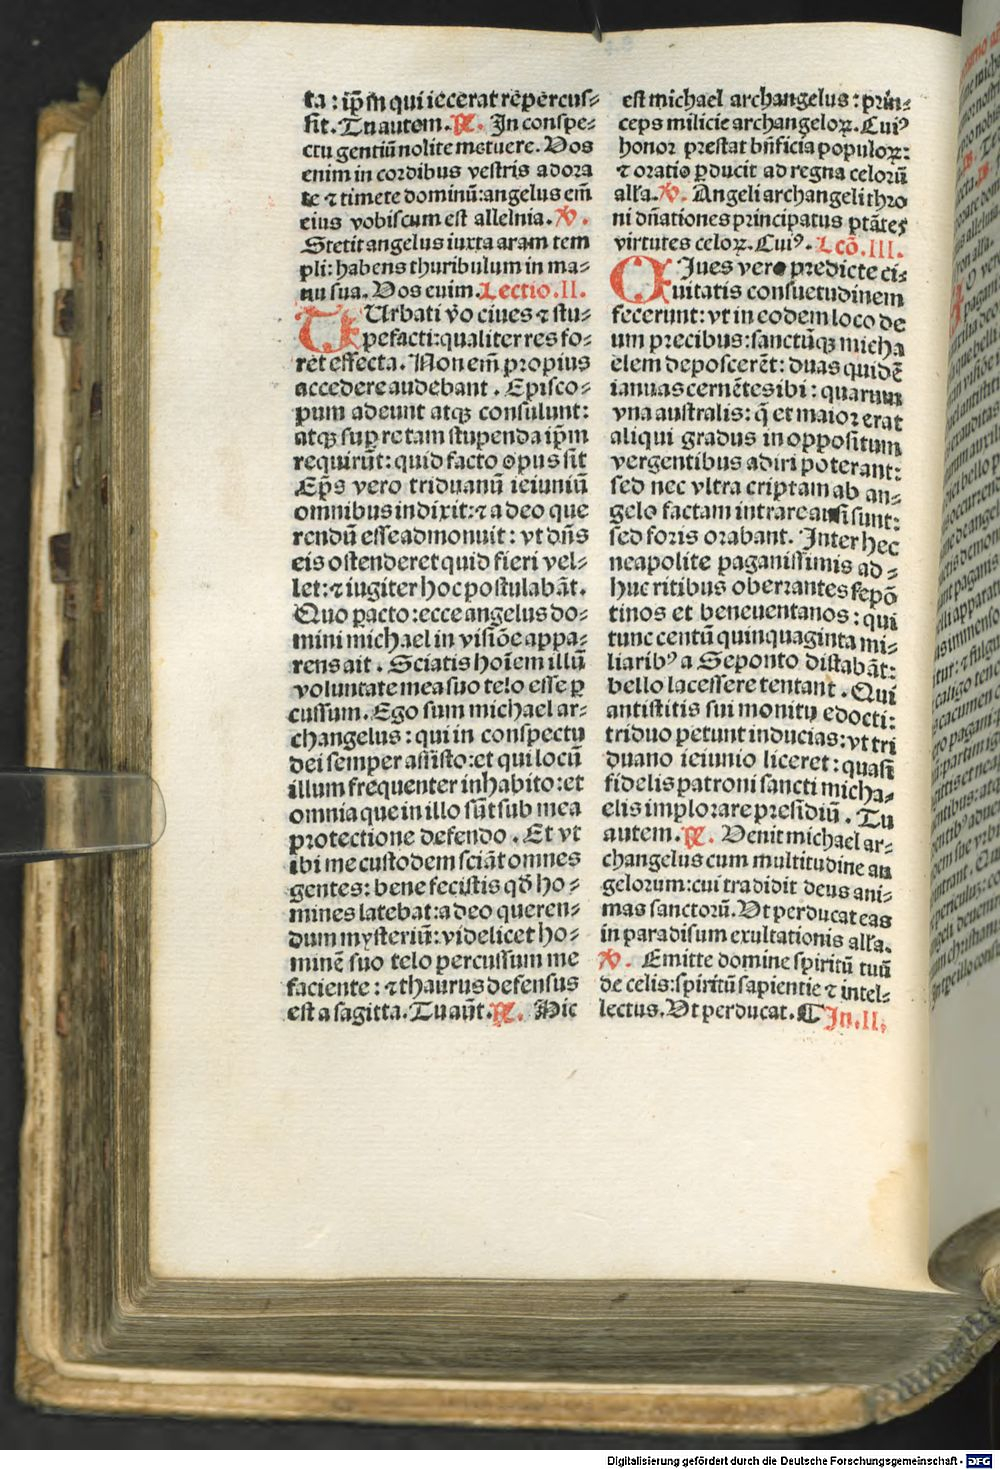 ta : ip̄m qui iecerat repercus⸗
sit. Tu autem. ℟. In conspe⸗
ctu gentiū nolite metuere. Vos
enim in cordibus vestris adora
te ⁊ timete dominū: angelus em̄
eius vobiscum est allelnia. ℣.
Stetit angelus iuxta aram tem
pli: habens thuribulum in ma⸗
nu sua. Vos enim. Lectio. II.
TUrbati v̄o ciues ⁊ stu⸗
pefacti: qualiter res fo⸗
ret effecta. Non em̄ propius
accedere audebant. Episco⸗
pum adeunt atqꝫ consulunt:
atqꝫ suꝑ re tam stupenda ip̄m
requirūt: quid facto opus sit
Ep̄s vero triduanū ieiuniū
omnibus indixit: ⁊ a deo que
rendū esse admonuit: vt dn̄s
eis ostenderet quid fieri vel⸗
let: ⁊ iugiter hoc postulabāt.
Quo ꝑacto: ecce angelus do⸗
mini michael in visiōe appa⸗
rens ait. Sciatis hoīem illū
voluntate mea suo telo esse ꝑ
cussum. Ego sum michael ar⸗
changelus: qui in conspectu
dei semper assisto: et qui locū
illum frequenter inhabito: et
omnia que in illo sūt sub mea
protectione defendo. Et vt
ibi me custodem sciāt omnes
gentes: bene fecistis qd̄ ho⸗
mines latebat: a deo queren⸗
dum mysteriū: videlicet ho⸗
minē suo telo percussum me
faciente: ⁊ thaurus defensus
est a sagitta. Tu aūt. ℟. Hic
est michael archangelus: prin⸗
ceps milicie archangeloꝝ. Cuiꝰ
honor prestat bn̄ficia populoꝝ:
⁊ oratio ꝑducit ad regna celorū
all'a. ℣. Angeli archangeli thro
ni dn̄ationes principatus ptātes
virtutes celoꝝ. Cuiꝰ. Lcō. III.
CIues vero predicte ci⸗
uitatis consuetudinem
fecerunt: vt in eodem loco de
um precibus: sanctūqꝫ micha
elem deposcerēt: duas quidē
ianuas cernētes ibi: quarum
vna australis: q̄ et maior erat
aliqui gradus in oppositum
vergentibus adiri poterant:
sed nec vltra criptam ab an⸗
gelo factam intrare ausi sunt:
sed foris orabant. Inter hec
neapolite paganissimis ad⸗
huc ritibus oberrantes sepō
tinos et beneuentanos: qui
tunc centū quinquaginta mi⸗
liaribꝰ a Seponto distabāt:
bello lacessere tentant. Qui
antistitis sui monitu edocti:
triduo petunt inducias: vt tri
duano ieiunio liceret: quasi
fidelis patroni sancti micha⸗
elis implorare presidiū. Tu
autem. ℟. Venit michael ar⸗
changelus cum multitudine an
gelorum: cui tradidit deus ani⸗
mas sanctorū. Vt perducat eas
in paradisum exultationis all'a.
℣. Emitte domine spiritū tuū
de celis: spiritū sapientie ⁊ intel⸗
lectus. Vt perducat. ¶ In. II.
Digitalisierung gefördert durch die Deutsche Forschungsgemeinschaft - DFG